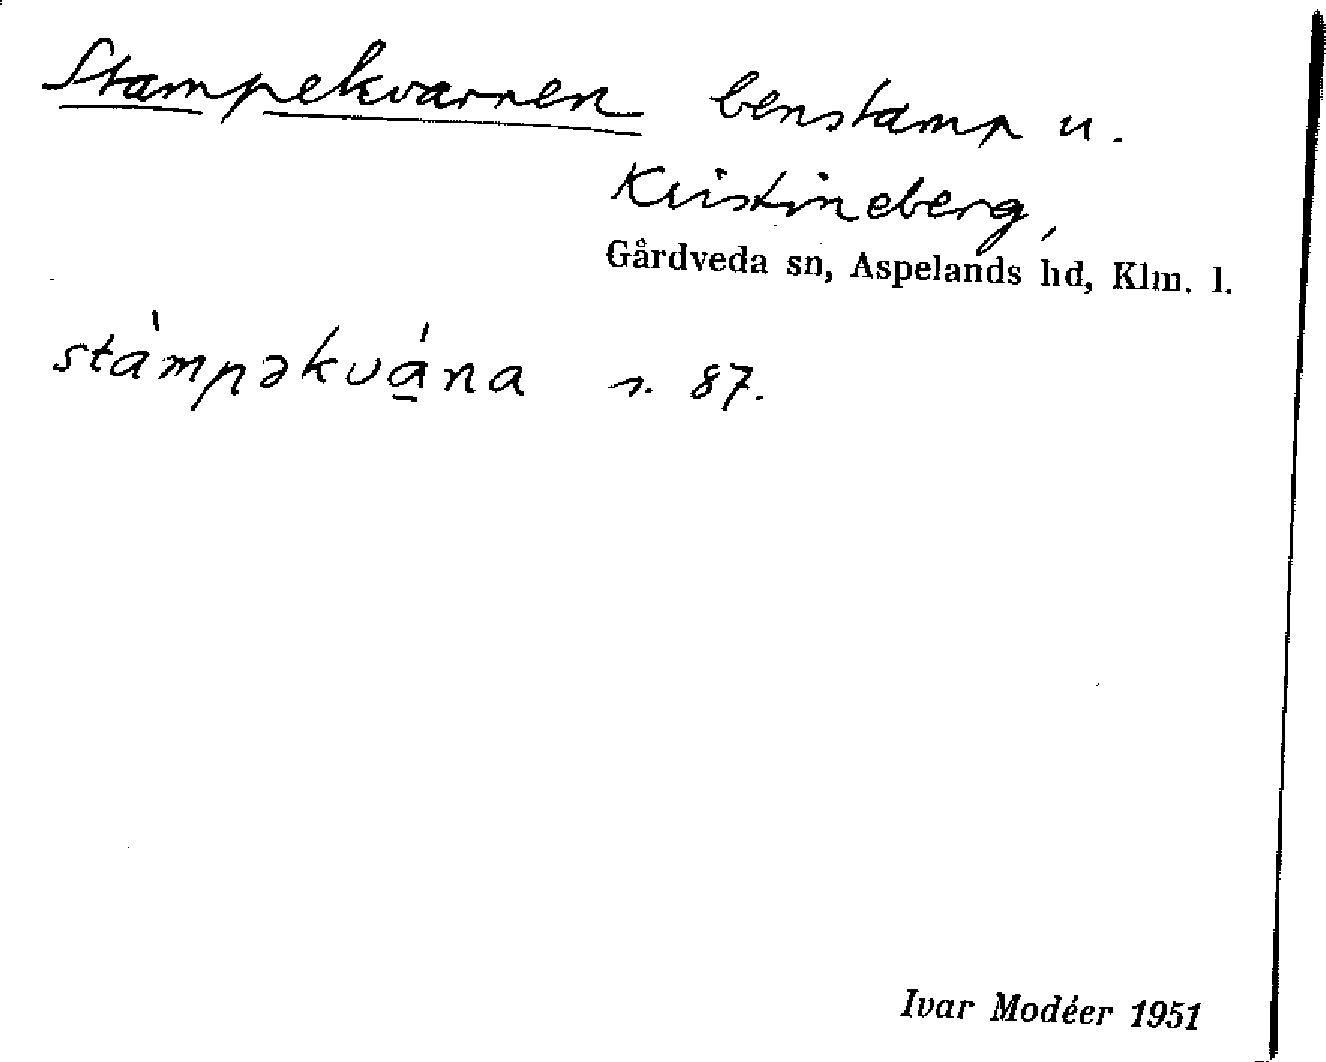 Stampekvarnen benstamp u.
Kristineberg,
Gårdveda sn, Aspelands hd, Klm. l.
stàmpəkvá̱na s. 87.
Ivar Modéer 1951